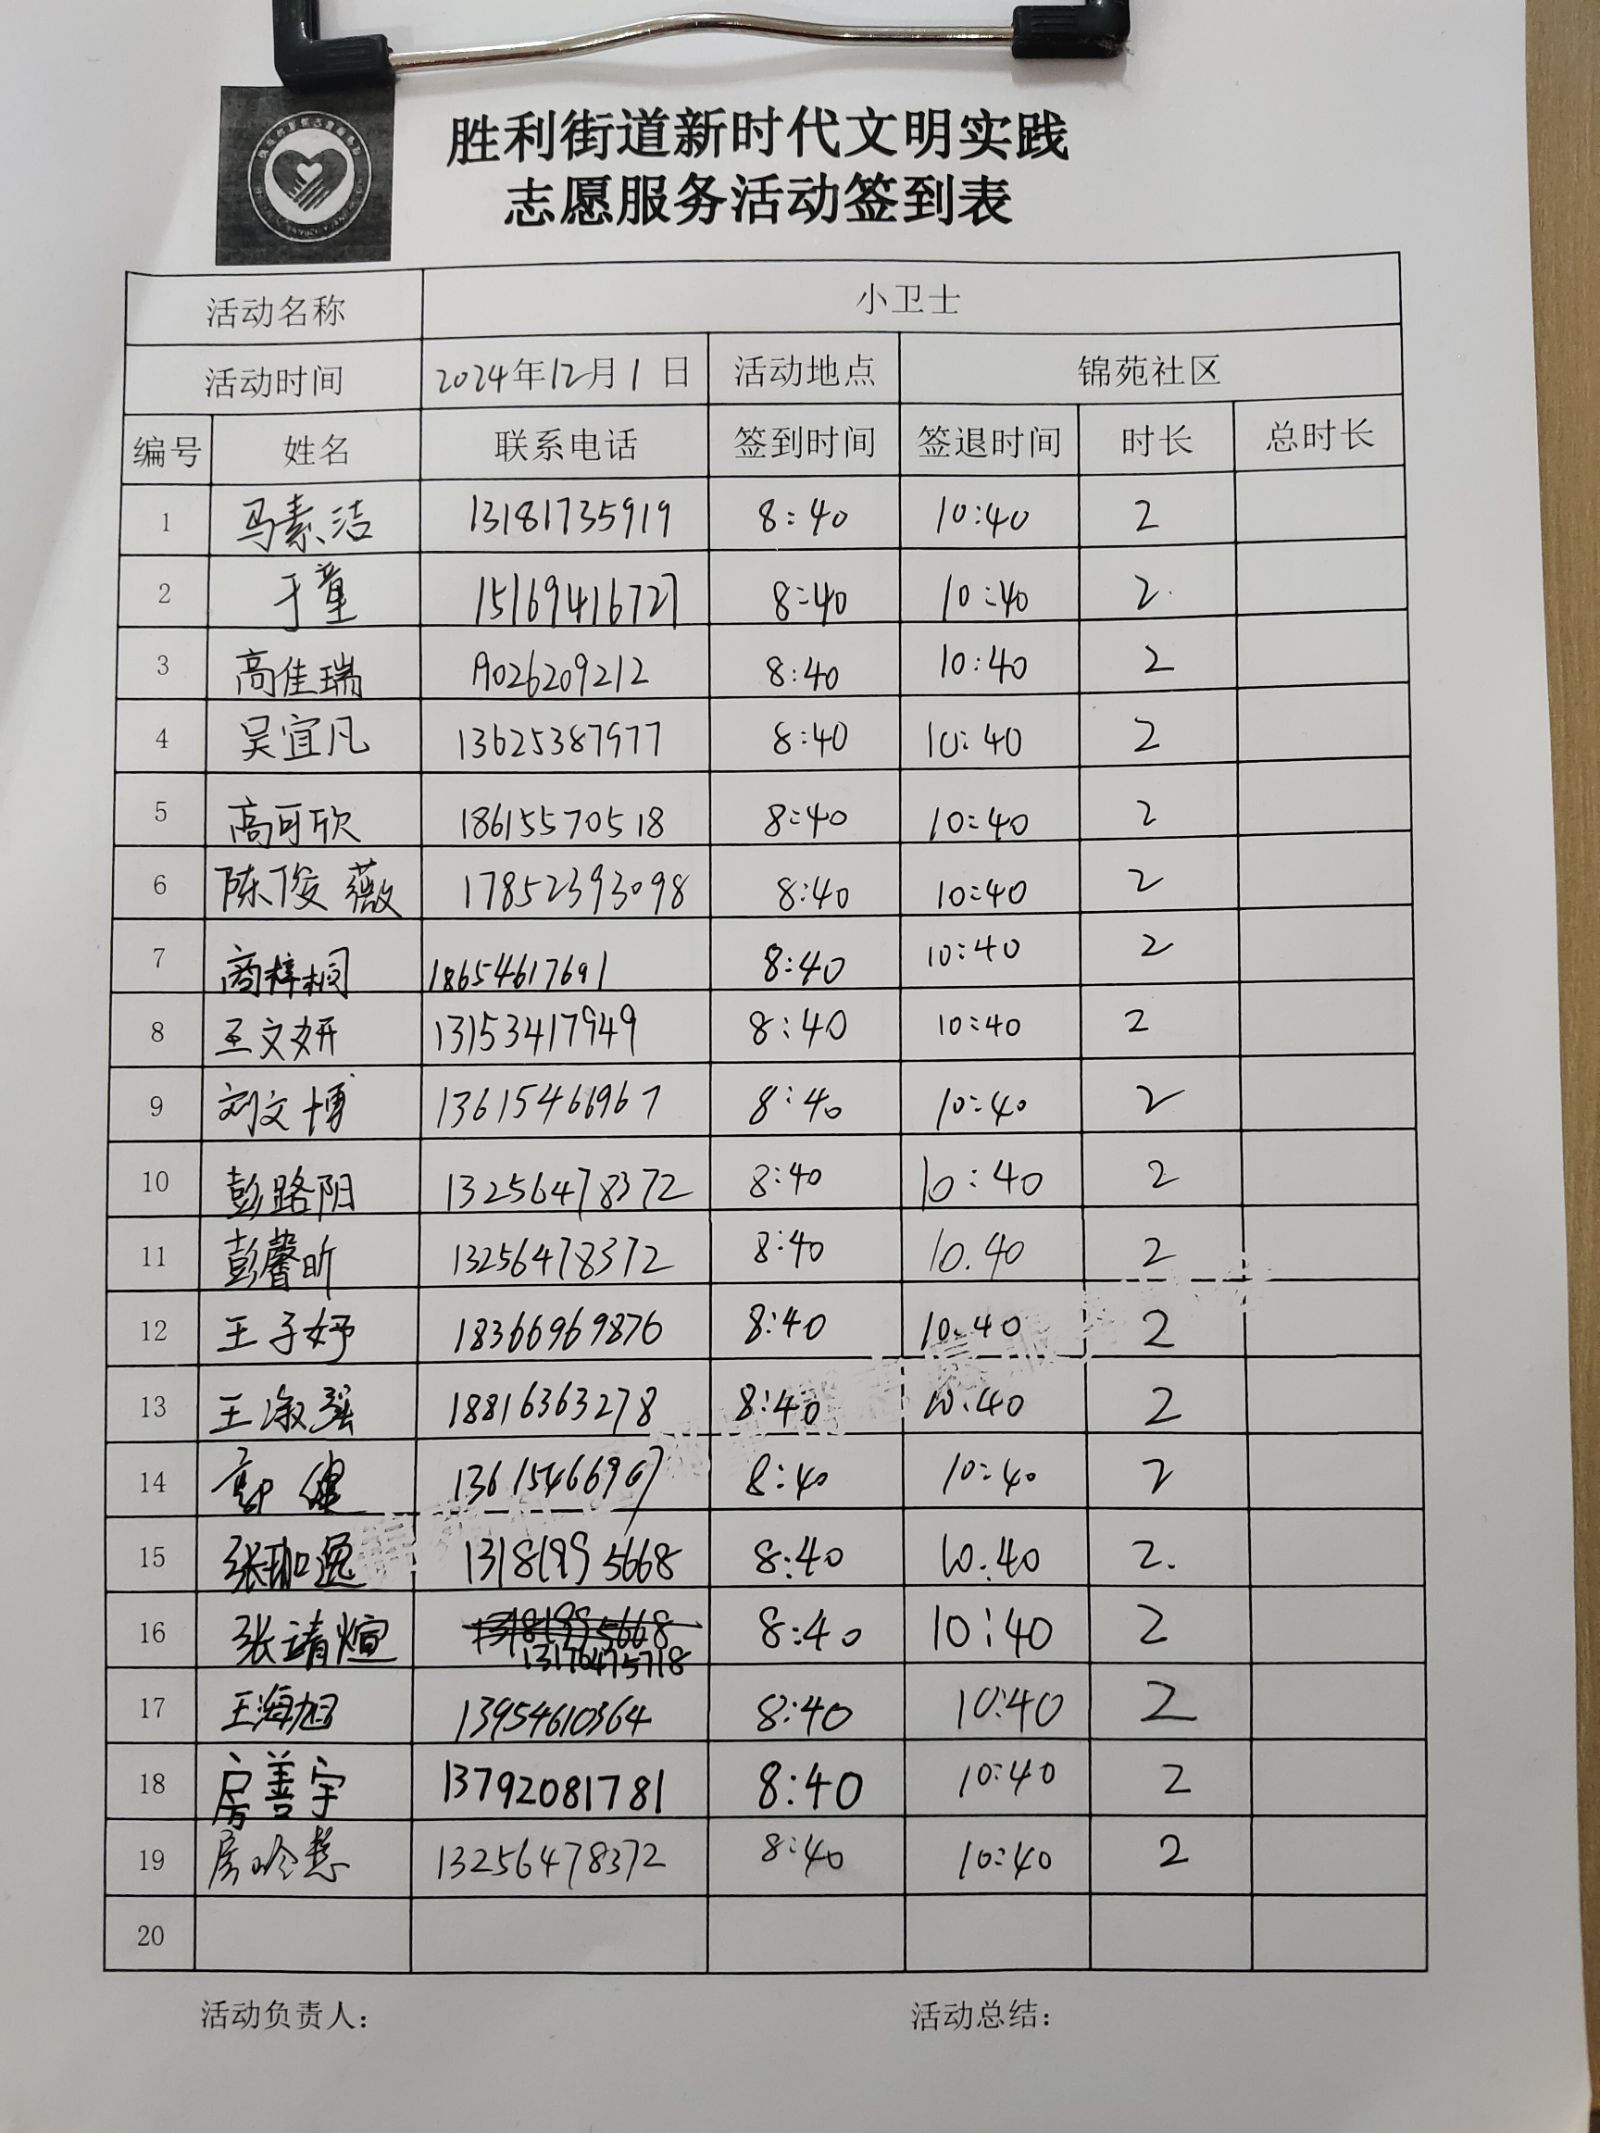 胜利街道新时代文明实践
志愿服务活动签到表
活动名称 小卫士
活动时间 2024年12月1日 活动地点 锦苑社区
编号 姓名 联系电话 签到时间 签退时间 时长 总时长
1 马素洁 13181735919 8:40 10:40 2
2 于童 15169416727 8:40 10:40 2
3 高佳瑞 8:40 10:40 2
4 吴宜凡 13625387977 8:40 10:40 2
5 高可欣 18615570518 8:40 10:40 2
6 陈俊薇 17852393098 8:40 10:40 2
7 商梓桐 18654617691 8:40 10:40 2
8 王文妍 13153417949 8:40 10:40 2
9 刘文博 13615466967 8:40 10:40 2
10 彭路阳 13256478372 8:40 10:40 2
11 彭馨昕 13256478372 8:40 10.40 2
12 王子妤 18366969876 8:40 10.40 2
13 王淑强 18816363278 8:40 10.40 2
14 健 13615466967 8:40 10:40 2
15 张珈逸 13181995668 8:40 10:40 2.
16 张靖煊 13181995668 8:40 10:40 2
13176475718
17 王海旭 13954610364 8:40 10:40 2
18 房善宇 13792081781 8:40 10:40 2
19 房 13256478372 8:40 10:40 2
20
活动负责人: 活动总结: